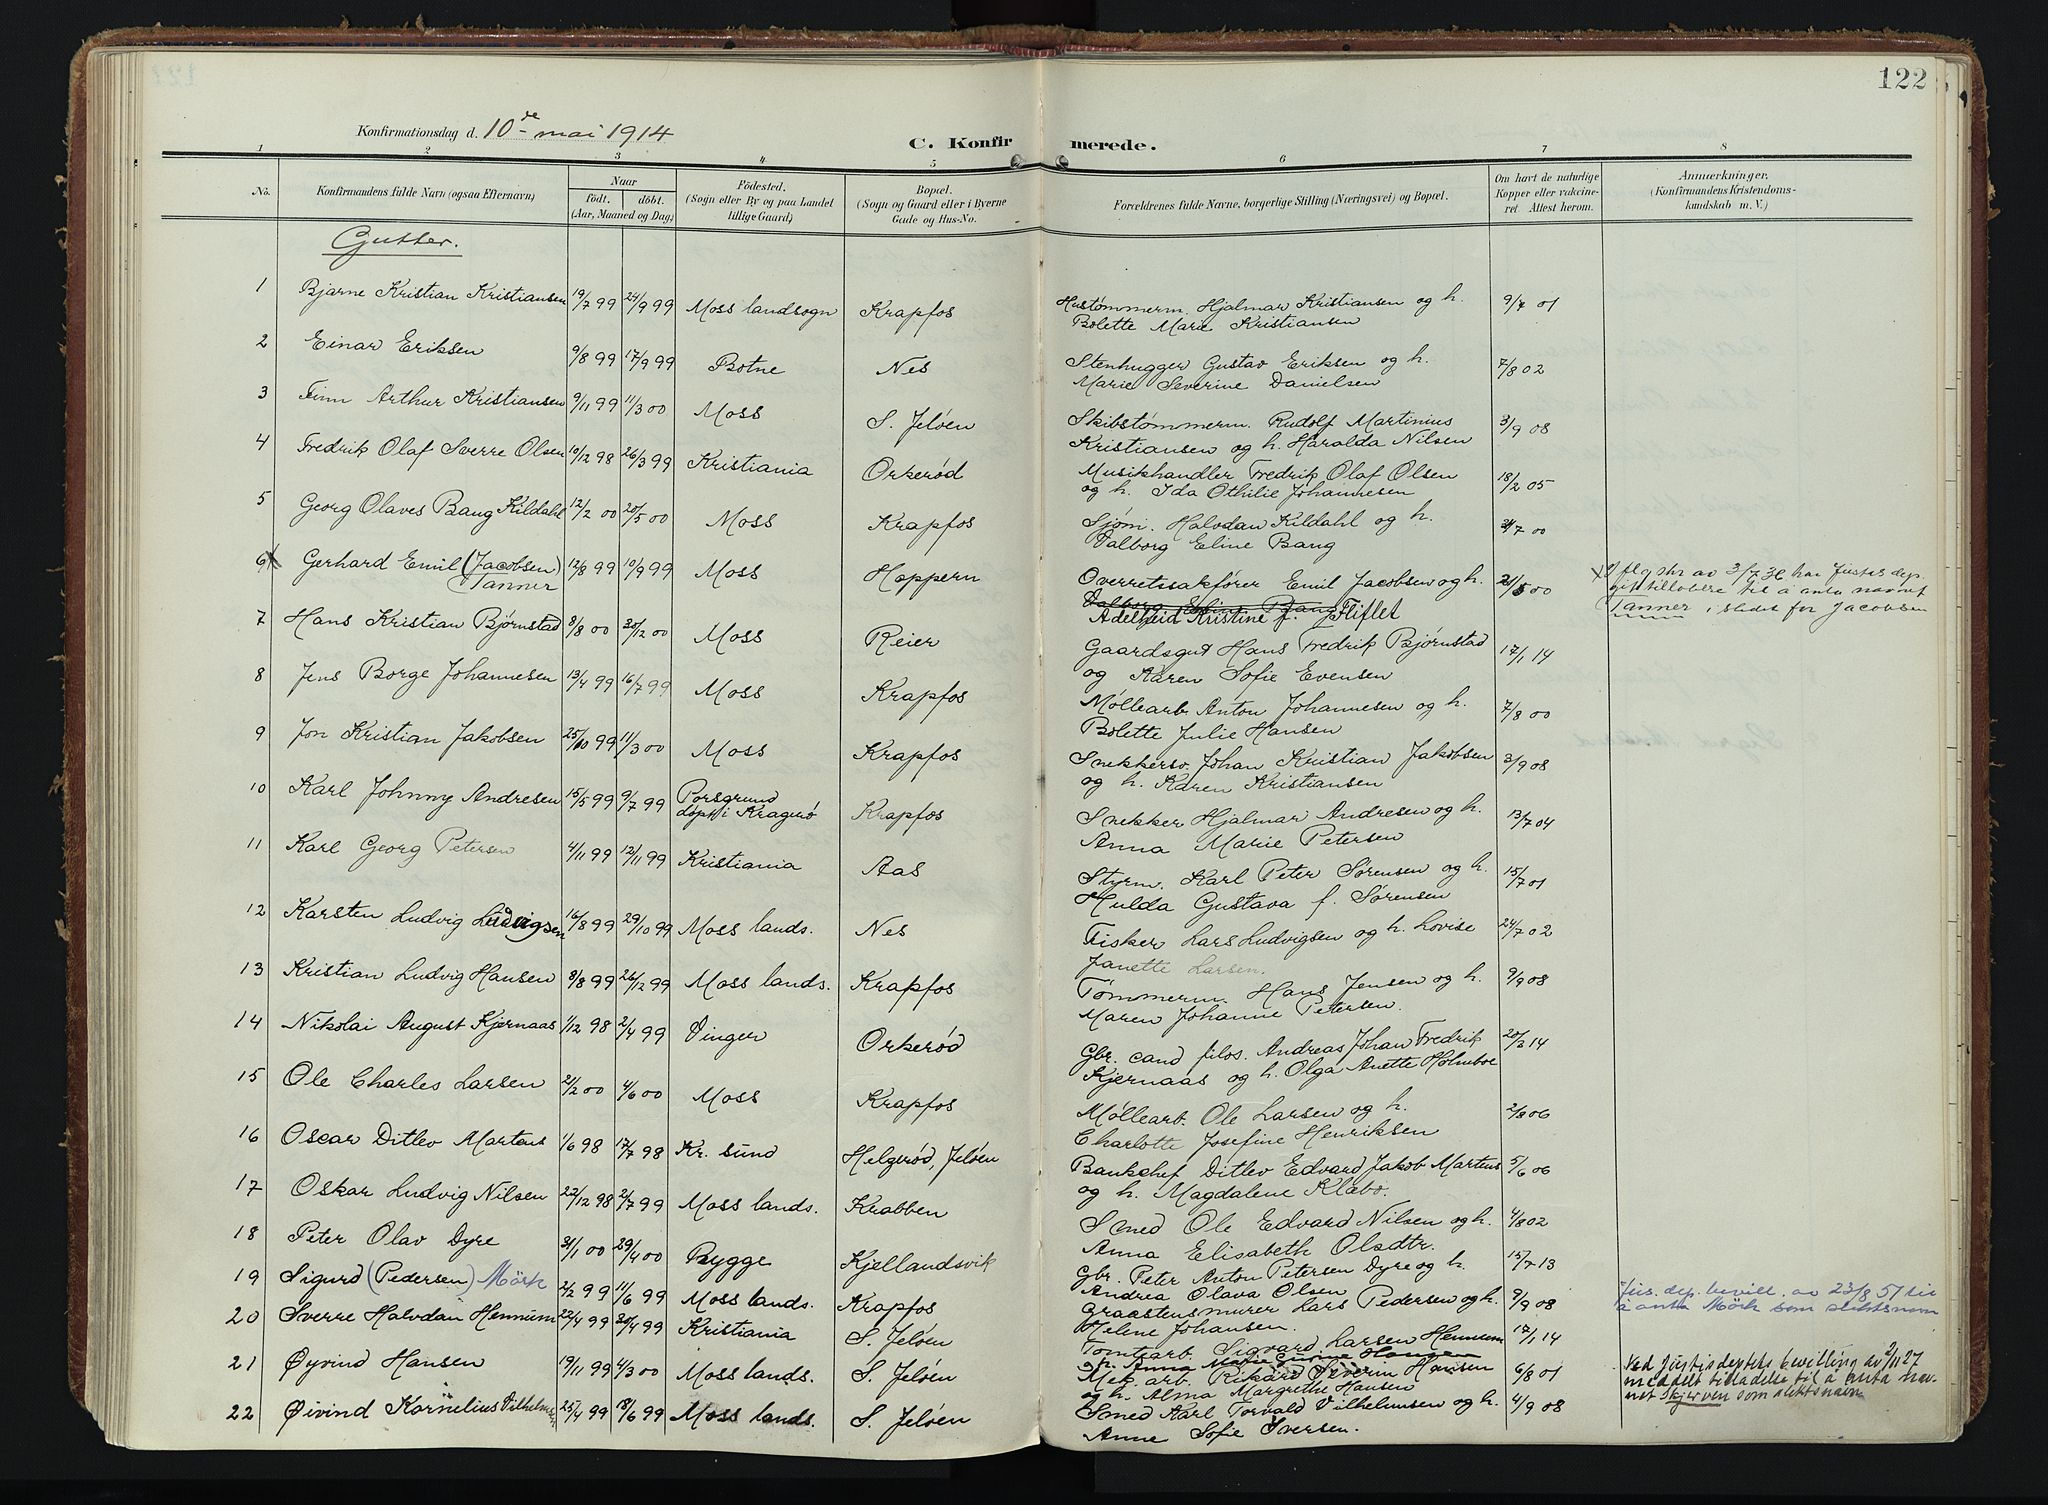 122
Konfirmationsdag d. 10de mai 1914
C. Konfirmerede.
1 2 3 4 5 6 7 8
No. Konfirmandens fulde Navn (ogsaa Efternavn) Naar født. døbt. (Aar, Maaned og Dag) Fødested. (Sogn eller By og paa Landet tillige Gaard) Bopæl. (Sogn og Gaard eller i Byerne Gade og Hus-No. Forældrenes fulde Navne, borgerlige Stilling (Næringsvei) og Bopæl. Om havt de naturlige Kopper eller vakcineret. Attest herom. Anmærkninger. (Konfirmandens Kristendomskundskab m. V.)
Gutter.
1 Bjarne Kristian Kristiansen 19/7 99 24/9 99 Moss landsogn Krapfos Hustømmerm. Hjalmar Kristiansen og h. 9/7 01
Bolette Marie Kristiansen
2 Einar Eriksen 9/8 99 17/9 99 Botne Nes Stenhugger Gustav Eriksen og h. 7/8 02
Marie Severine Danielsen
3 Finn Arthur Kristiansen 9/11 99 11/3 00 Moss S. Jeløen Skibstømmerm. Rudolf Martinius 3/9 08
Kristiansen og h. Haralda Nilsen
4 Fredrik Olaf Sverre Olsen 10/12 98 26/3 99 Kristiania Orkerød Musikhandler Fredrik Olaf Olsen 18/2 05
og h. Ida Othilie Johannesen
5 Georg Olaves Bang Kildahl 12/2 00 20/5 00 Moss Krapfos Sjøm. Halvdan Kildahl og h. 00
Valborg Eline Bang
6 Gerhard Emil (Jacobsen) Tanner 12/8 99 10/9 99 Moss Høppern Overretssakfører Emil Jacobsen og h. 00
Valborg Eline Bang
Adelheid Kristine f. Fliflet
X I flg skr av 3/7 36 har Justis dep.
gitt tilladelse til å anta navnet
Tanner i stedet for Jacobsen
7 Hans Kristian Bjørnstad 8/8 00 30/12 00 Moss Reier Gaardsgut Hans Fredrik Bjørnstad 17/1 14
og Karen Sofie Evensen
8 Jens Borge Johannesen 13/4 99 16/7 99 Moss Krapfos Møllearb. Anton Johannesen og h. 7/8 00
Bolette Julie Hansen
9 Jon Kristian Jakobsen 25/10 99 11/3 00 Moss Krapfos Snekkersv. Johan Kristian Jakobsen 3/9 08
og h. Karen Kristiansen
10 Karl Johnny Andresen 15/5 99 9/7 99 Porsgrund døpt i Kragerø Krapfos Snekker Hjalmar Andresen og h. 13/7 04
Anna Marie Petersen
11 Karl Georg Petersen 4/11 99 12/11 99 Kristiania Aas Styrm. Karl Peter Sørensen og h. 15/7 01
Hulda Gustava f. Sørensen
12 Karsten Ludvig Ludvigsen 16/8 99 29/10 99 Moss lands. Nes Fisker Lars Ludvigsen og h. Lovise 24/7 02
Janette Larsen.
13 Kristian Ludvig Hansen 8/8 99 26/12 99 Moss lands. Krapfos Tømmerm. Hans Jensen og h. 9/9 08
Maren Johanne Petersen.
14 Nikolai August Kjernaas 1/12 98 2/4 99 Vinger Orkerød Gbr. cand filos. Andreas Johan Fredrik 20/2 14
Kjernaas og h. Olga Anette Holmboe
15 Ole Charles Larsen 2/2 00 4/6 00 Moss Krapfos Møllearb. Ole Larsen og h. 2/8 06
Charlotte Josefine Henriksen
16 Oscar Ditlev Martens 1/6 98 17/7 98 Kr. sund Helgerød, Jeløen Bankchef Ditlev Edvard Jakob Martens 5/6 06
og h. Magdalene Klabo.
17 Oskar Ludvig Nilsen 22/12 98 2/7 99 Moss lands. Krabben Smed Ole Edvard Nilsen og h. 4/8 02
Anna Elisabeth Olsdtr.
18 Peter Olav Dyre 31/1 00 29/4 00 Rygge Kjellandsvik Gbr. Peter Anton Petersen Dyre og h. 15/7 13
Andrea Olava Olsen
19 Sigurd (Pedersen) Mörk 2/2 99 11/6 99 Moss lands. Krapfos Graastensmurer Lars Pedersen og h. 9/9 08
Helene Johansen.
Jus. dep. bevill. av 23/8 51 til
å anta Mörk som slektsnavn
20 Sverre Halvdan Hennum 22/4 99 30/4 99 Kristiania S. Jeløen Tomtearb. Sigvard Larsen Hennum 17/1 14
og h. Anna Marie Hansen
21 Øyvind Hansen 19/11 99 4/3 00 Moss lands. S. Jeløen Mek. arb. Rikard Severin Hansen 6/8 01
og h. Alma Margrethe Hansen
Ved Justisdeptets bevilling av 2/11 27
meddelt tilladelse til å anta navnet
Skjerven som slektsnavn
22 Øivind Kornelius Vilhelmsen 25/4 99 18/6 99 Moss lands. S. Jeløen Smed Karl Torvald Vilhelmsen og h. 4/9 08
Anne Sofie Iversen.